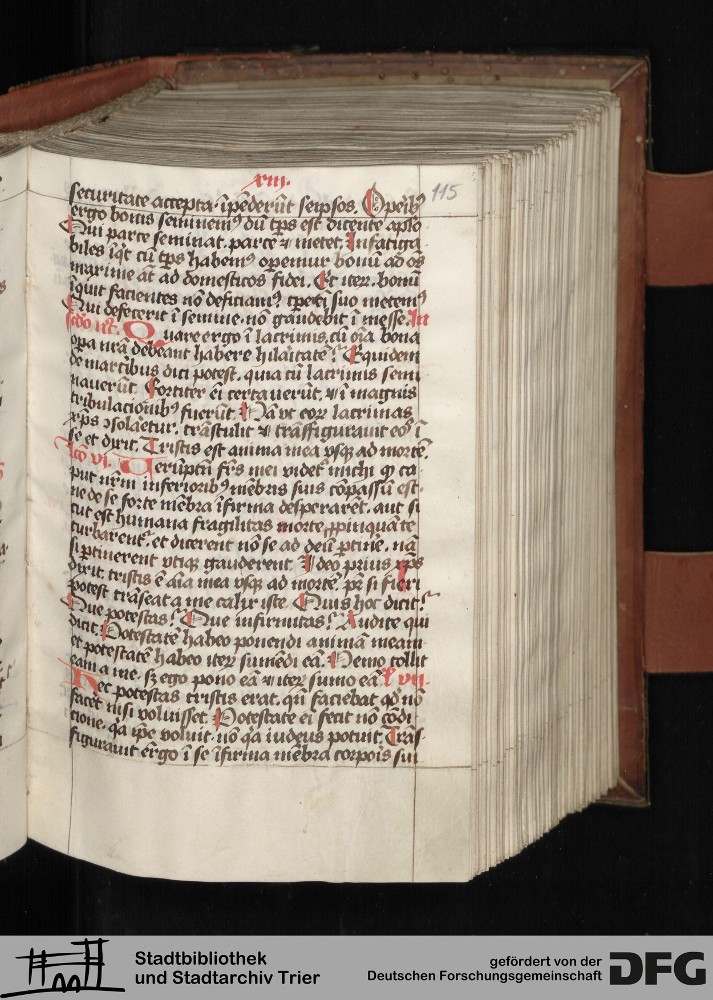 xiii.
115
securitate accepta· īpēderūt seipsos. Operibꝰ
ergo bonis seminemꝰ dū tp̄s est dicente apl̄o
Qui parte seminat· parce ⁊ metet. Infatiga
biles īqͥt cū tp̄s habemꝰ operemur bonū ad oēs
maxime aūt ad domesticos fidei. Et iteꝝ· bonū
īquit facientes nō deficiamꝰ tp̄e ei suo metemꝰ
Qui defecerit ī semine· nō gaudebit ī messe. In
Quare ergo ī lacrimis· cū oīa bona
opa nr̄a debeant habere hilaritatē? Equidem
de martibus dici potest· quia cū lacrimis semi
nauerūt. Fortiter ei certauerūt· ⁊ ī magnis
tribulacionibꝰ fuerūt. Nā vt eoꝝ lacrimas
xp̄s ꝯsolaretur· trāstulit ⁊ trāsfigurauit eos ī
se et dixit. Tristis est anima mea vsqꝫ ad mortē.
frēs mei videtᷣ michi qͥ ca
put nr̄m inferioribꝰ mēbris suis cōpassū est·
ne de se forte mēbra īfirma desperarēt· aut si
cut est humana fragilitas morte ꝓpinquāte
turbarentᷣ· et dicerent nō se ad deū ꝑtinē· nā
si ꝑtinerent vtiqꝫ gauderent. Ideo prius xp̄s
dixit· tristis ē aīa mea vsqꝫ ad mortē· pr̄ si fieri
potest trāseat a me calix iste. Quis hoc dicit?
Que potestas? Que infirmitas? Audite qui
dicit. Potestatē habeo ponendi animā meam
et potestatē habeo iteꝝ sumēdi eā. Nemo tollit
eam a me· sꝫ ego pono eā ⁊ iteꝝ sumo eā. vii.
Hec potestas tristis erat· qn̄ faciebat qd̄ nō
facet nisi voluisset. Potestate ei fecit nō cōdi
cione· qͣ ip̄e voluit· nō qͣ iudeus potuit. Trās
figurauit ergo ī se īfirma mēbra corporis sui
Stadtbibliothek
und Stadtarchiv Trier
gefördert von der
Deutschen Forschungsgemeinschaft
DFG